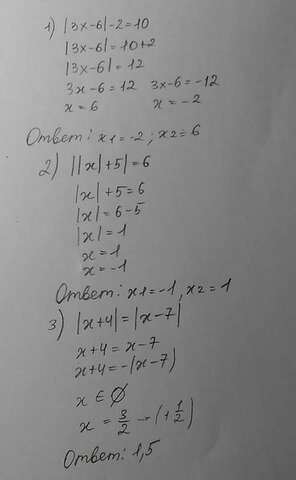 1) |3x-6|-2=10
|3x-6|=10+2
|3x-6|=12
3x-6=12 3x-6=-12
x=6 x=-2
Ответ: x1=-2; x2=6
2) ||x|+5|=6
|x|+5=6
|x|=6-5
|x|=1
x=1
x=-1
Ответ: x1=-1, x2=1
3) |x+4|=|x-7|
x+4=x-7
x+4=-|x-7)
x∈∅
x=3/2-(1 1/2)
Ответ: 1,5